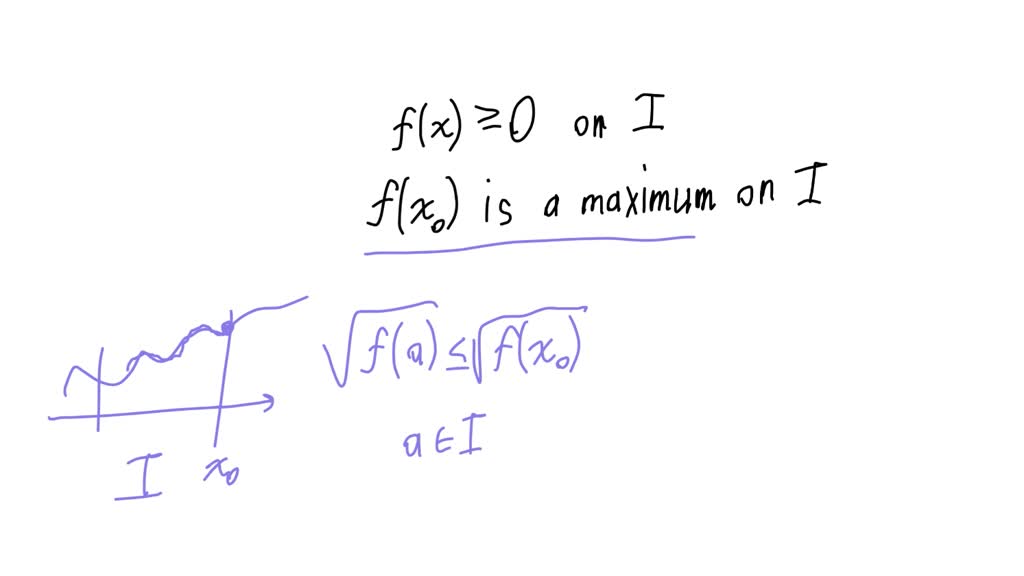 f(x) ≥ 0 on I
f(x₀) is a maximum on I
√f(a) ≤ √f(x₀)
a ∈ I
I x₀